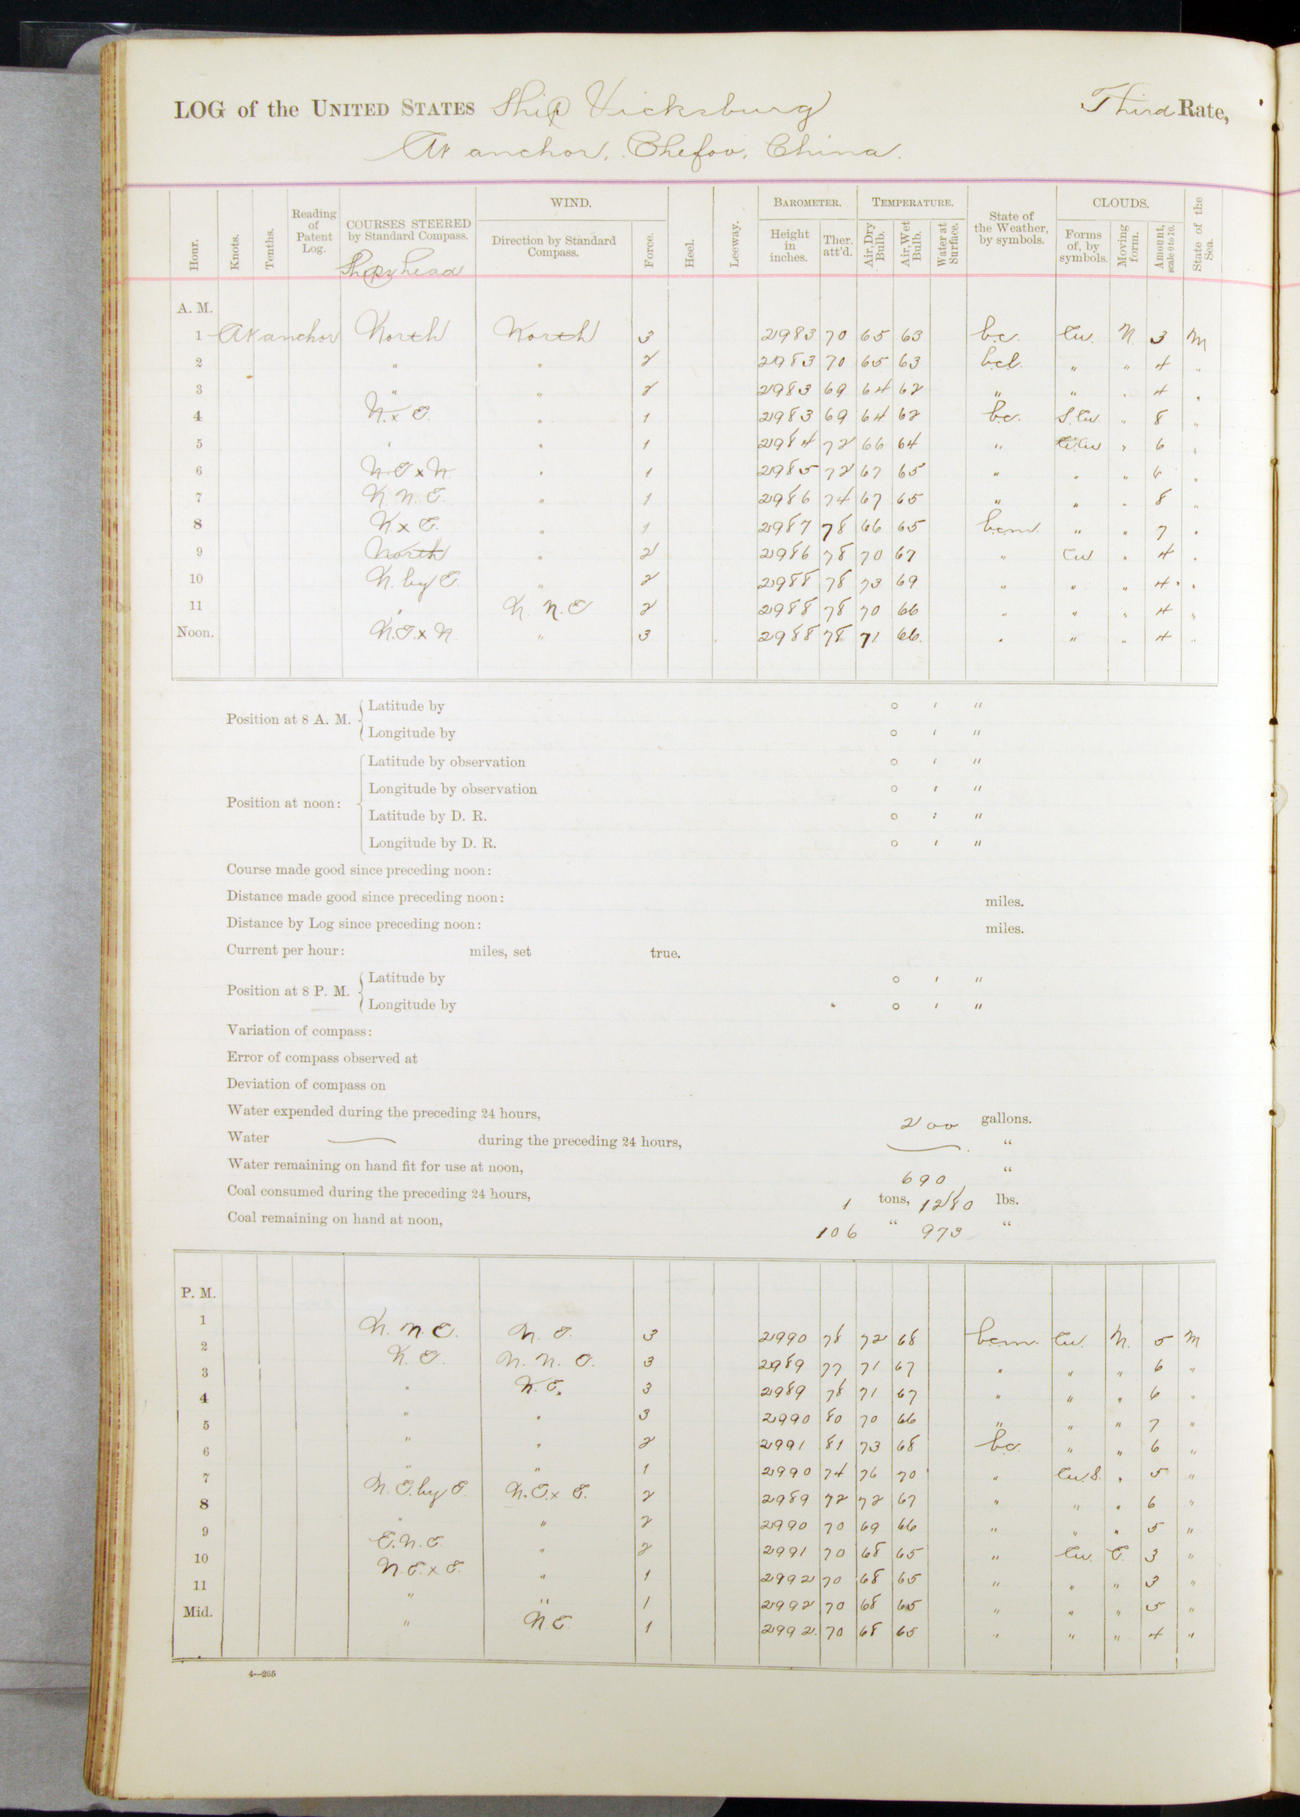 LOG of the UNITED STATES Ship Vicksburg Third Rate,
At anchor, Chefoo, China.
Hour. Knots. Tenths. Reading of Patent Log. COURSES STEERED by Standard Compass. Ship's head WIND. Direction by Standard Compass. Force. Heel. Leeway. BAROMETER. Height in inches. Ther. att'd. TEMPERATURE. Air, Dry Bulb. Air, Wet Bulb. Water at Surface. State of the Weather, by symbols. CLOUDS. Forms of, by symbols. Moving form. Amount, scale 0 to 10. State of the Sea.
A. M.
1 At anchor North North 3 2983 70 65 63 b.c. Cu. N. 3 M
2 " " 2 2983 70 65 63 b.c.l. " " 4 "
3 " " 2 2983 69 64 62 " " " 4 "
4 N. x E. " 1 2983 69 64 62 b.c. S.Cu. " 8 "
5 " " 1 2984 72 66 64 " " 6 "
6 N.E x N. " 1 2985 72 67 65 " " " 6 "
7 N. N. E. " 1 2986 74 67 65 " " " 8 "
8 N x E. " 1 2987 78 66 65 b.c.m. " " 7 "
9 North " 2 2986 78 70 67 " Cu " 4 "
10 N. by E. " 2 2988 78 73 69 " " " 4 "
11 " N. N. E 2 2988 78 70 66 " " " 4 "
Noon. N.E. x N. " 3 2988 78 71 66 " " " 4 "
Position at 8 A. M. Latitude by ° ' "
Longitude by ° ' "
Position at noon: Latitude by observation ° ' "
Longitude by observation ° ' "
Latitude by D. R. ° ' "
Longitude by D. R. ° ' "
Course made good since preceding noon:
Distance made good since preceding noon: miles.
Distance by Log since preceding noon: miles.
Current per hour: miles, set true.
Position at 8 P. M. Latitude by ° ' "
Longitude by ° ' "
Variation of compass:
Error of compass observed at
Deviation of compass on
Water expended during the preceding 24 hours, 200 gallons.
Water — during the preceding 24 hours, — "
Water remaining on hand fit for use at noon, 690 "
Coal consumed during the preceding 24 hours, 1 tons, 1280 lbs.
Coal remaining on hand at noon, 106 " 973 "
P. M.
1 N. N. E. N. E. 3 2990 78 72 68 b.c.m. Cu. N. 5 M
2 N. E. N. N. E. 3 2989 77 71 67 " " " 6 "
3 " N. E. 3 2989 78 71 67 " " " 6 "
4 " " 3 2990 80 70 66 " " " 7 "
5 " " 2 2991 81 73 68 b.c. " " 6 "
6 " " 1 2990 74 76 70 " Cu S. " 5 "
7 N. E. by E. N.E. x E. 2 2989 72 72 67 " " " 6 "
8 " " 2 2990 70 69 66 " " " 5 "
9 E. N. E. " 2 2991 70 68 65 " Cu. E. 3 "
10 N. E. x E. " 1 2992 70 68 65 " " " 3 "
11 " " 1 2992 70 68 65 " " " 5 "
Mid. " N. E. 1 2992 70 68 65 " " " 4 "
4—265